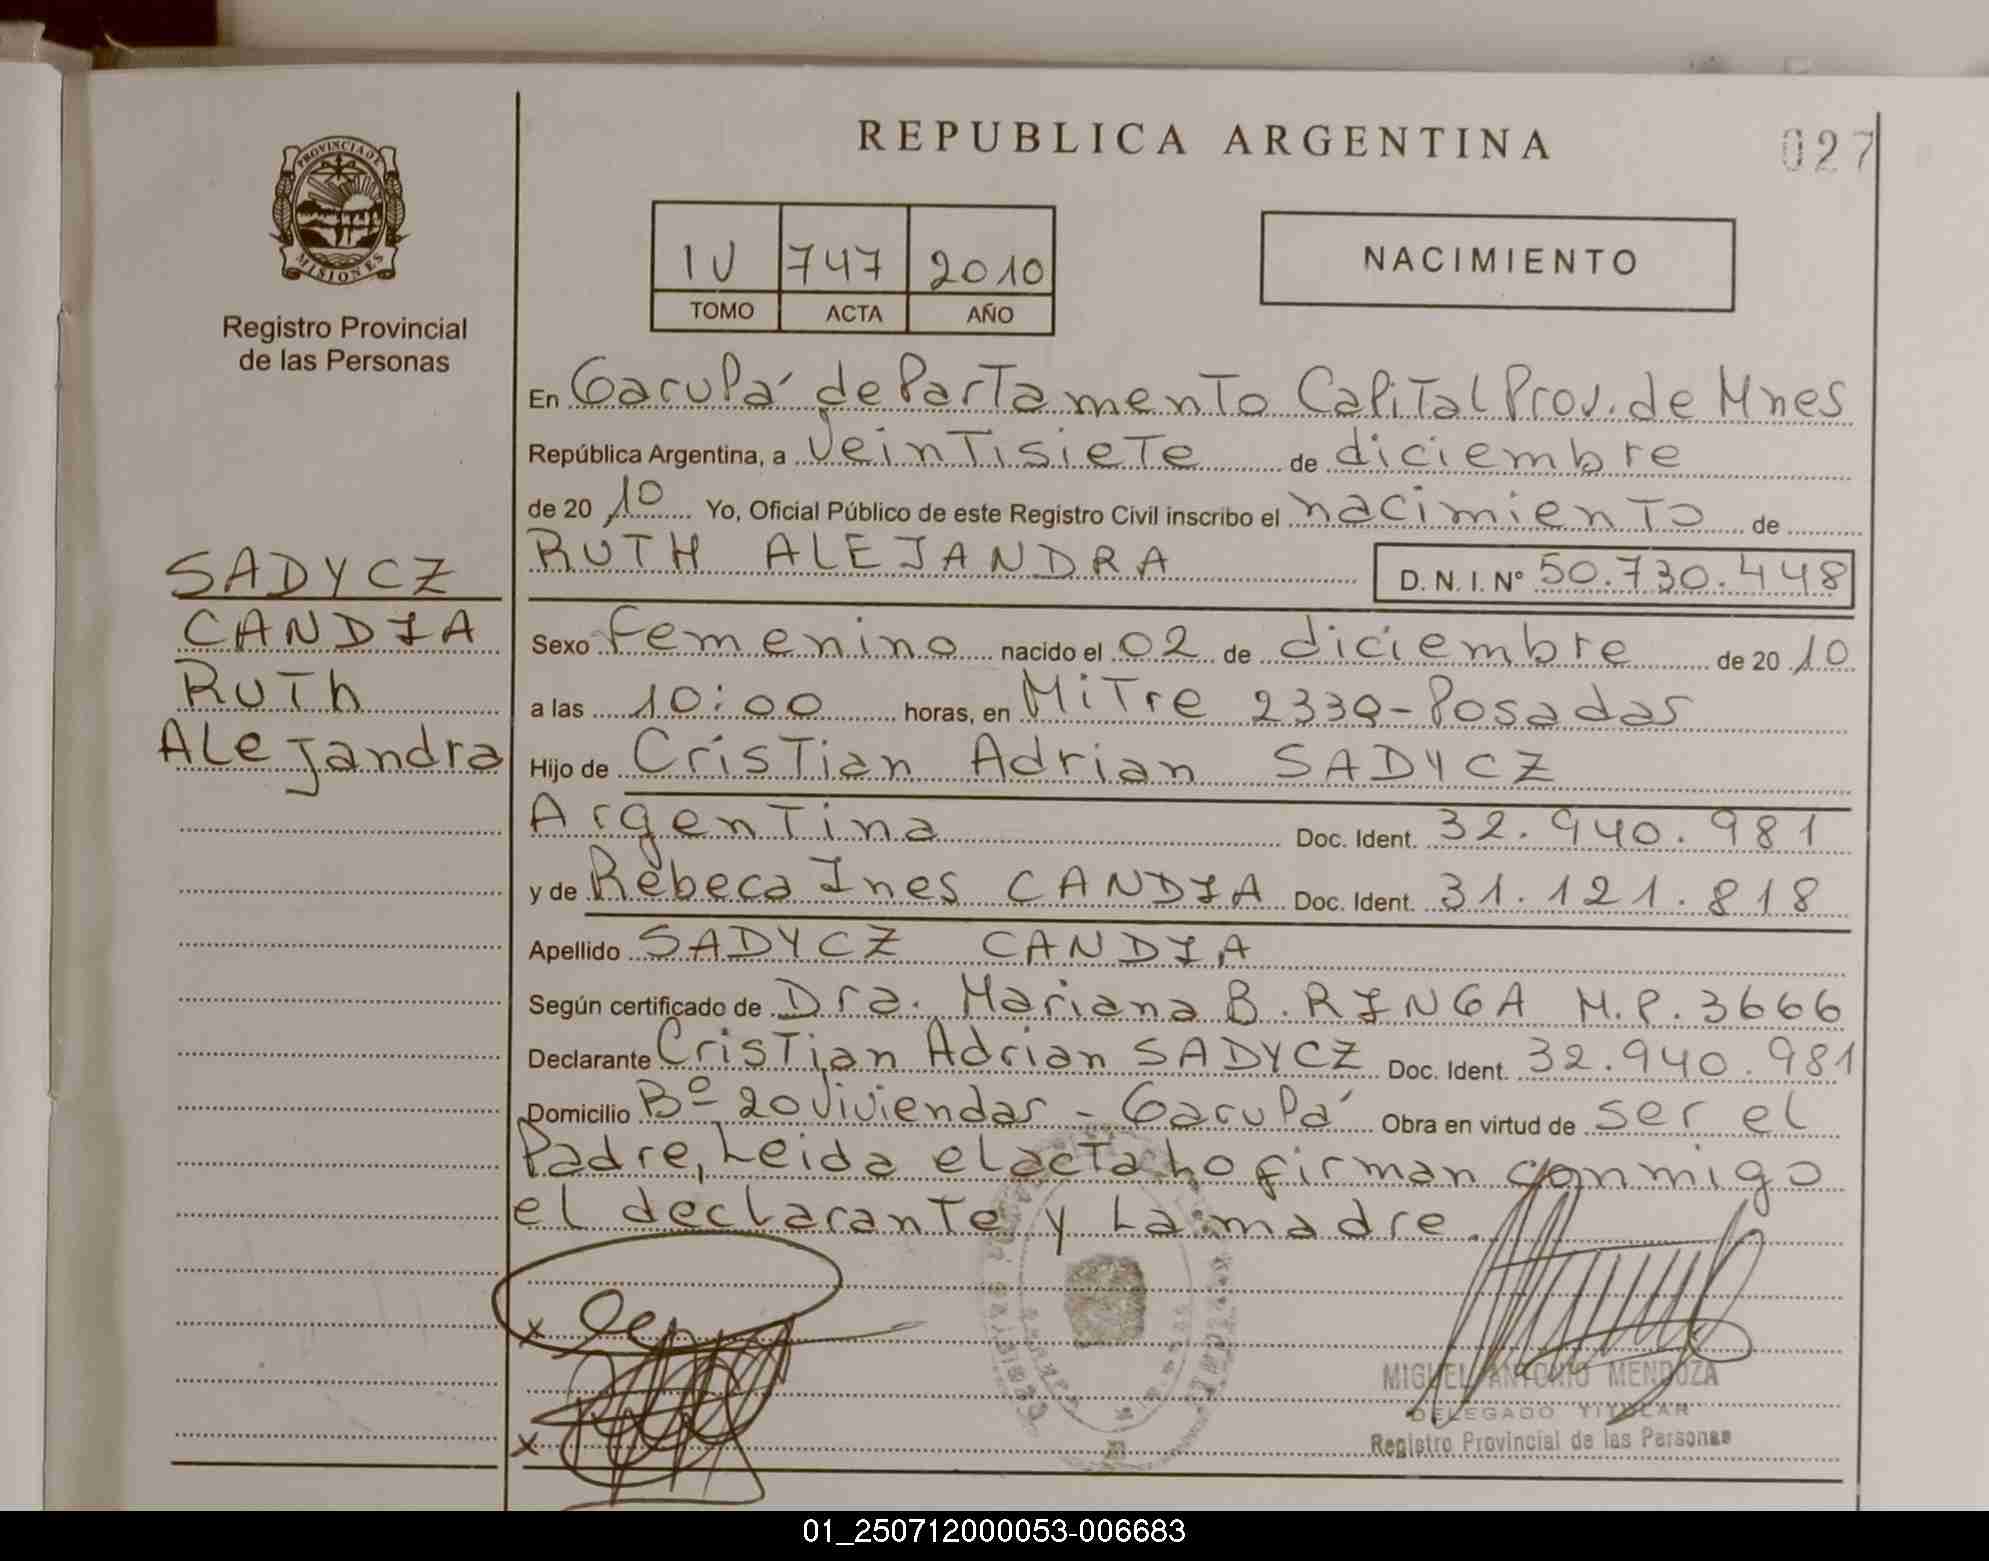 REPUBLICA ARGENTINA
027
PROVINCIA DE
MISIONES
Registro Provincial
de las Personas
IV 747 2010
TOMO ACTA AÑO
NACIMIENTO
SADYCZ
CANDIA
Ruth
Alejandra
En Garupá departamento Capital Prov. de Mnes
República Argentina, a veintisiete de diciembre
de 20 10 Yo, Oficial Público de este Registro Civil inscribo el nacimiento de
RUTH ALEJANDRA D.N.I. Nº 50.730.448
Sexo Femenino nacido el 02 de diciembre de 20 10
a las 10:00 horas, en Mitre 2330-Posadas
Hijo de Cristian Adrian SADYCZ
Argentina Doc. Ident. 32.940.981
y de Rebeca Ines CANDIA Doc. Ident. 31.121.818
Apellido SADYCZ CANDIA
Según certificado de Dra. Mariana B. RINGA M.P. 3666
Declarante Cristian Adrian SADYCZ Doc. Ident. 32.940.981
Domicilio Bº 20 viviendas - Garupá Obra en virtud de ser el
Padre, Leida el acta ho firman conmigo
el declarante y La madre.
x
x
MIGUEL ANTONIO MENDOZA
DELEGADO TITULAR
Registro Provincial de las Personas
01_250712000053-006683